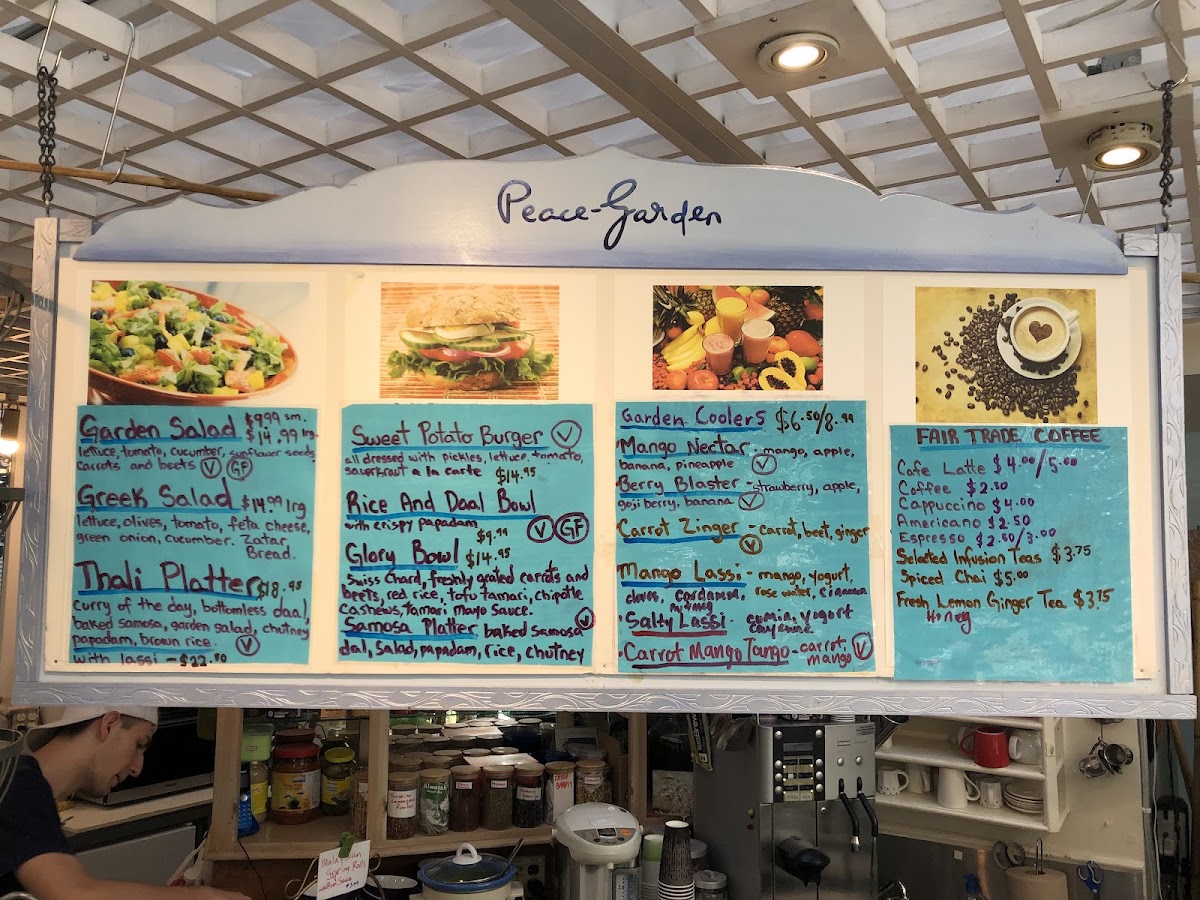 Peace-Garden
Garden Salad $9.99 sm.
$14.99 lrg.
lettuce, tomato, cucumber, sunflower seeds,
carrots and beets V GF
Greek Salad $14.99 lrg
lettuce, olives, tomato, feta cheese,
green onion, cucumber. Zatar
Bread.
Thali Platter $18.95
curry of the day, bottomless daal,
baked samosa, garden salad, chutney
papadam, brown rice. V
with lassi - $22.50
Sweet Potato Burger V
all dressed with pickles, lettuce, tomato,
sauerkraut a la carte $14.95
Rice And Daal Bowl
with crispy papadam V GF
$9.99
Glory Bowl $14.95
Swiss chard, freshly grated carrots and
beets, red rice, tofu tamari, chipotle
cashews, tamari mayo sauce. V
Samosa Platter, baked samosa
dal, salad, papadam, rice, chutney
Garden Coolers $6.50/8.99
Mango Nectar - mango, apple,
banana, pineapple V
Berry Blaster - strawberry, apple,
goji berry, banana V
Carrot Zinger - carrot, beet, ginger
V
Mango Lassi - mango, yogurt,
cardamom, rose water,
nutmeg
Salty Lassi - cumin, yogurt
cayenne
Carrot Mango Tango - carrot, V
mango
FAIR TRADE COFFEE
Cafe Latte $4.00/5.00
Coffee $2.50
Cappuccino $4.00
Americano $2.50
Espresso $2.50/3.00
Selected Infusion Teas $3.75
Spiced Chai $5.00
Fresh Lemon Ginger Tea $3.75
Honey
Malaysian
Spring Rolls